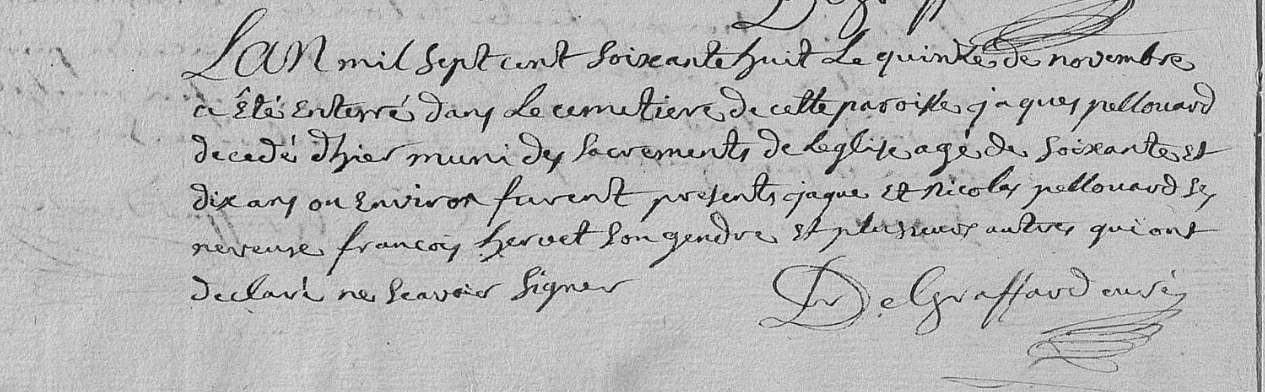 LAN mil sept cent soixante huit le quinze de novembre
a été enterré dans le cemetiere de cette paroisse jaques pellouard
decedé d'hier muni des sacrements de leglise agé de soixante et
dix ans ou environ furent presents jaque et nicolas pellouard ses
neveuse francois hervet son gendre et plusieurs autres qui ont
declaré ne scavoir signer
De Graffard curé